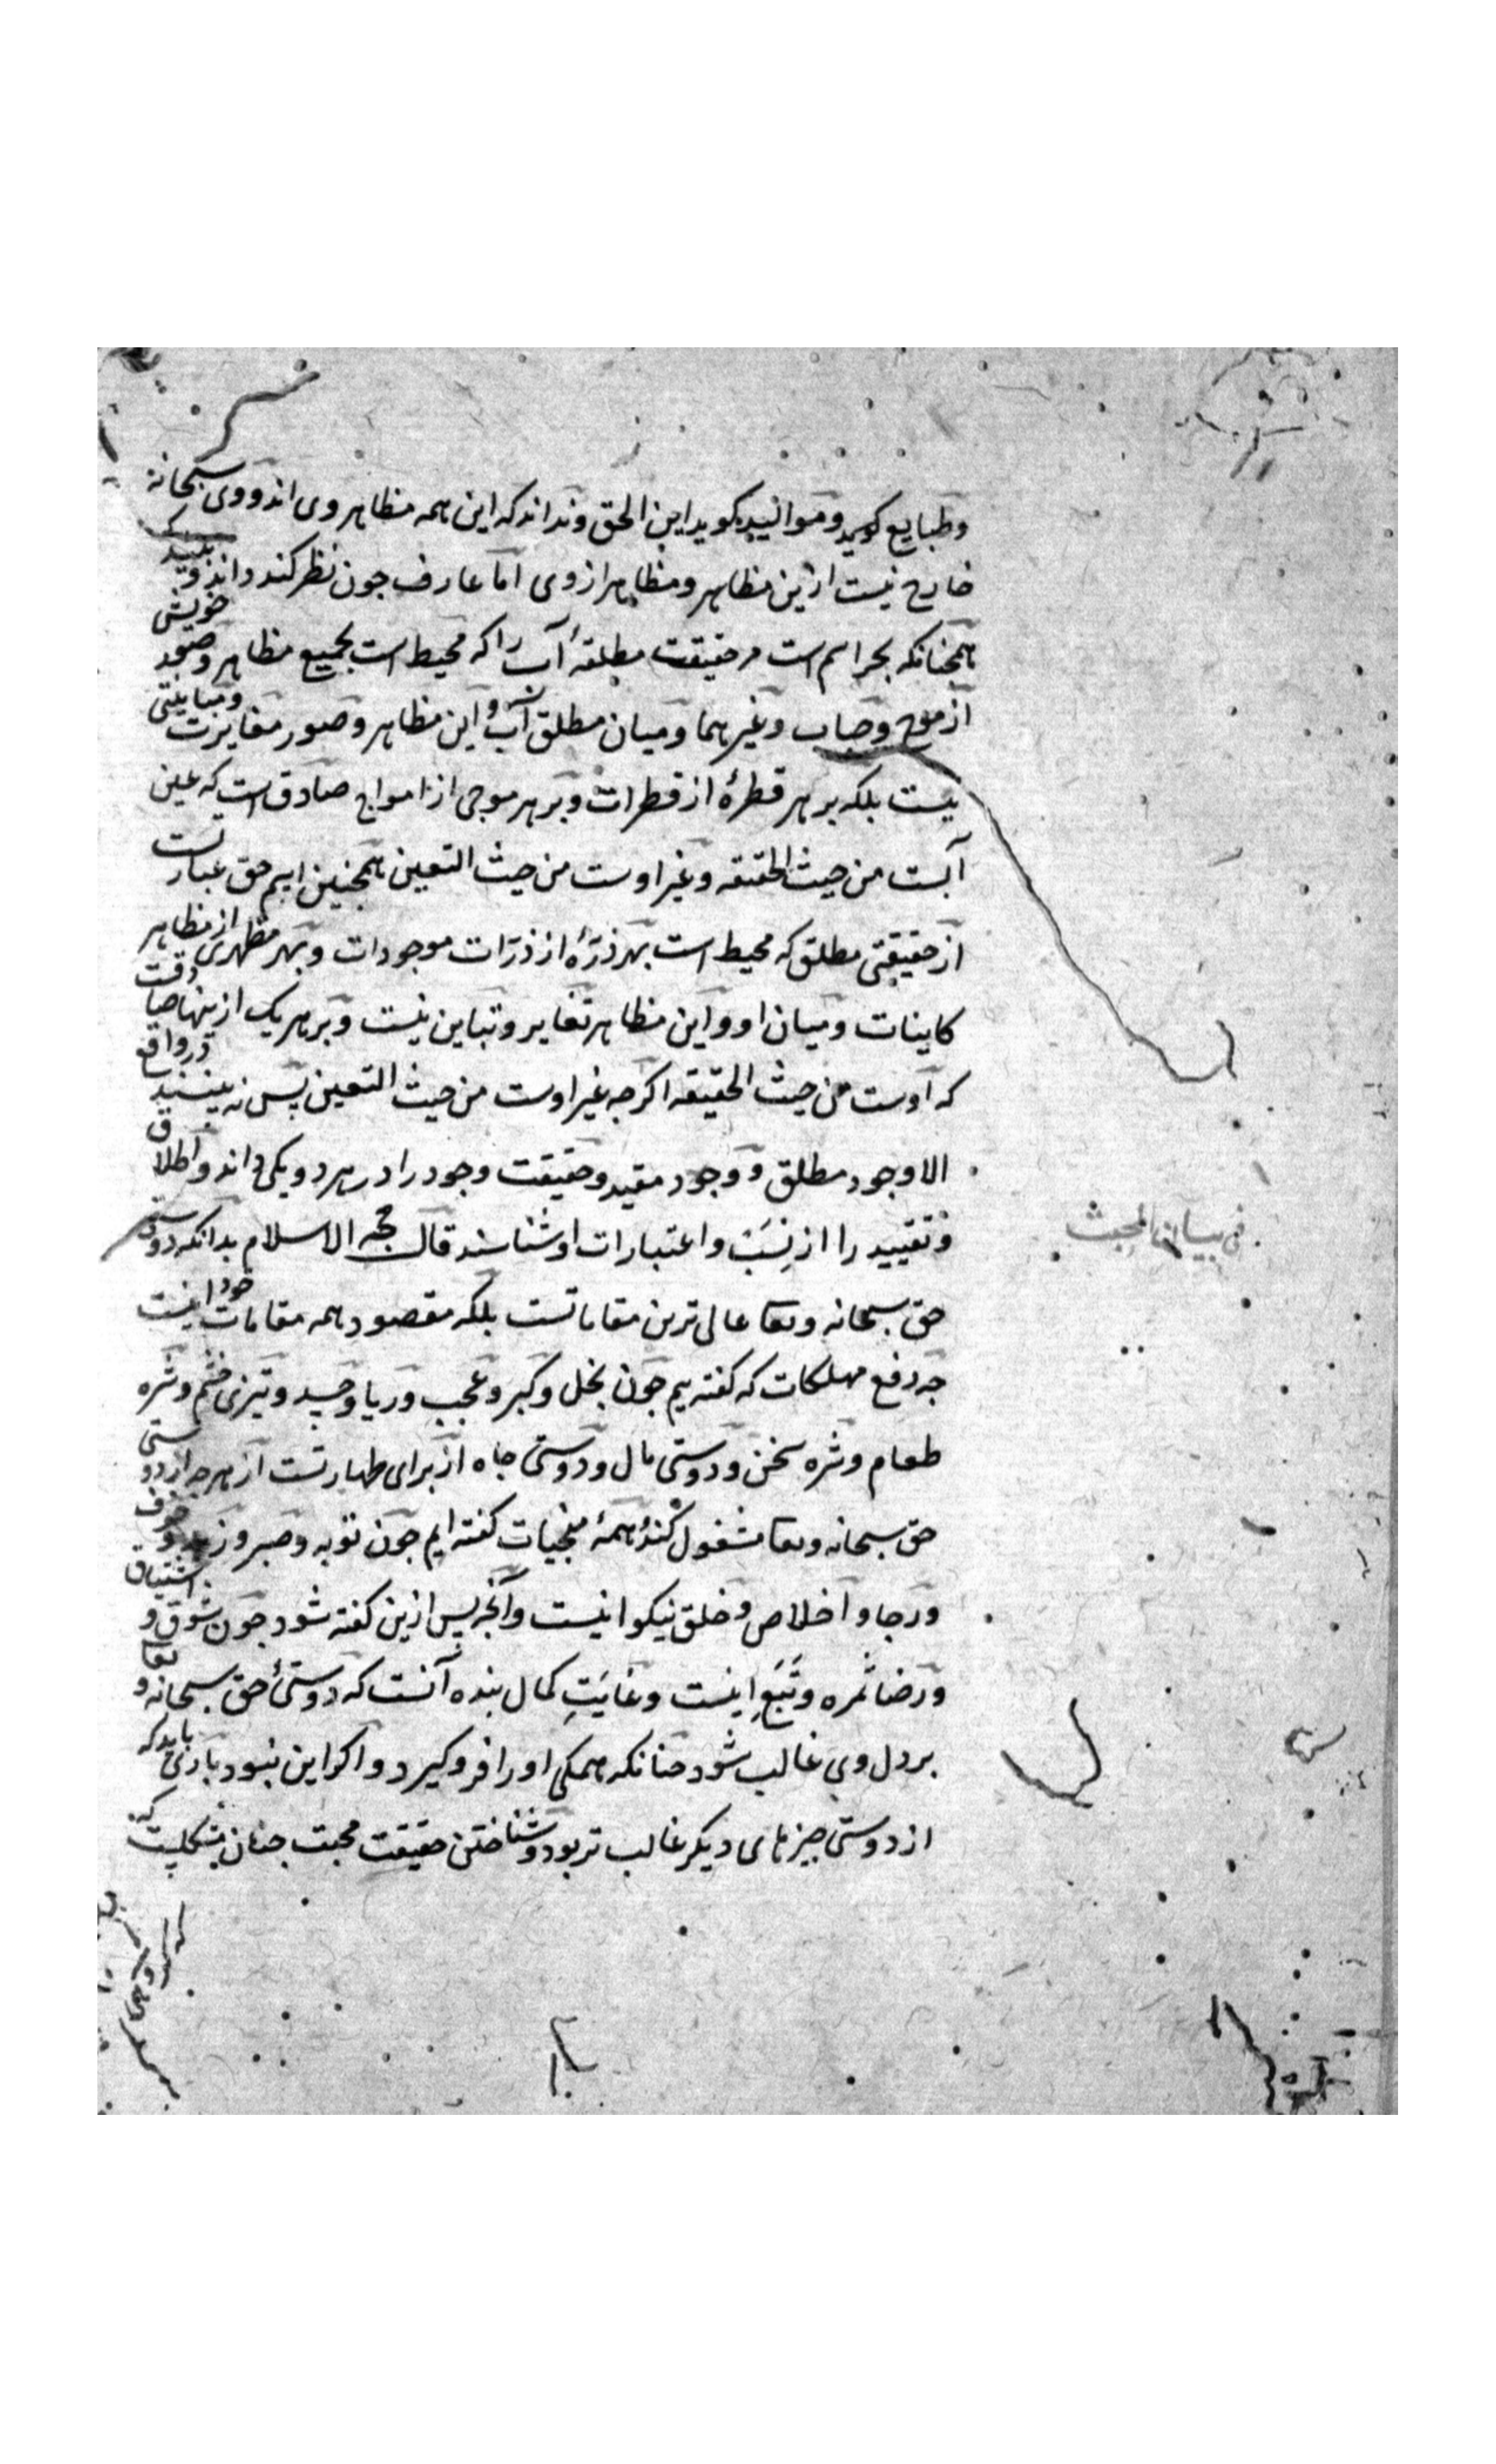 وطبایع کوید وموالید کوید این الحق ونداند که این همه مظاهر وی اند ووی سبحانه
خارج نیست ازین مظاهر ومظاهر ازوی اما عارف جون نظر کند داند وبیند که
همجنانکه بحر اسم است مر حقیقت مطلقهٔ آب را که محیط است بجمیع مظاهر وصور خویش
از موج وحباب وغیرهما ومیان مطلق آب واین مظاهر وصور مغایرت ومباینتی
نیست بلکه بر هر قطرهٔ از قطرات وبر هر موجی از امواج صادق است که عین
آبست من حیث الحقیقه وغیر اوست من حیث التعین همجنین اسم حق عبارتست
از حقیقتی مطلق که محیط است بهر ذرهٔ از ذرّات موجودات وبهر مظهری از مظاهر
کاینات ومیان او واین مظاهر تغایر وتباین نیست وبر هر یک ازینها صادقست
که اوست من حیث الحقیقه اکرجه غیر اوست من حیث التعین پس نه بینند در واقع
الا وجود مطلق ووجود مقید وحقیقت وجود را در هر دو یکی داند واطلاق
وتقیید را از نِسَب واعتبارات او شناسند قال حجه الاسلام بدانکه دوستی
حق سبحانه وتعا عالی ترین مقاماتست بلکه مقصود همه مقامات خود اینست
جه دفع مهلکات که کفته یم جون بخل وکبر وعجب وریا وحسد وتیزی خشم وشره
طعام وشره سخن ودوستی مال ودوستی جاه از برای طهارتست از هرجه از دوستی
حق سبحانه وتعا مشغول کند وهمهٔ منجیات کفته ایم جون توبه وصبر وزهد وخوف
ورجا واخلاص وخلق نیکو اینست وآنجه پس ازین کفته شود جون شوق واشتیاق
ورضا ثمره وتَبَعِ اینست وغایَتِ کمال بنده آنست که دوستیٔ حق سبحانه وتعا
بر دل وی غالب شود جنانکه همکی او را فرو کیرد واکر این نبود باری باید که
از دوستی جیزهای دیکر غالب تر بود وشناختن حقیقت محبت جنان مشکلست که
فی بیان المحبت